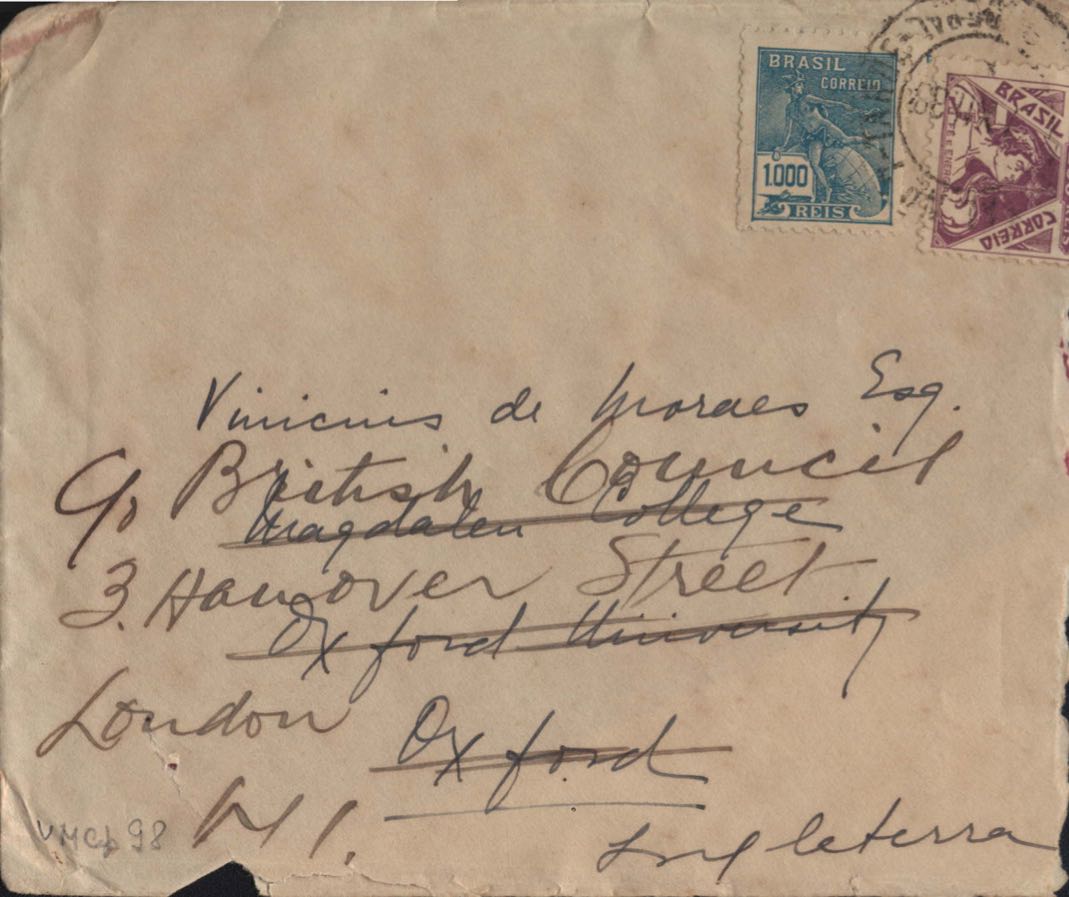 BRASIL
CORREIO
1.000
REIS
BRASIL
CORREIO
Vinicius de Moraes Esq.
c/o British Council
Magdalen College
3. Hanover Street
Oxford University
London
Oxford
W1.
Ingleterra
VMCp 98